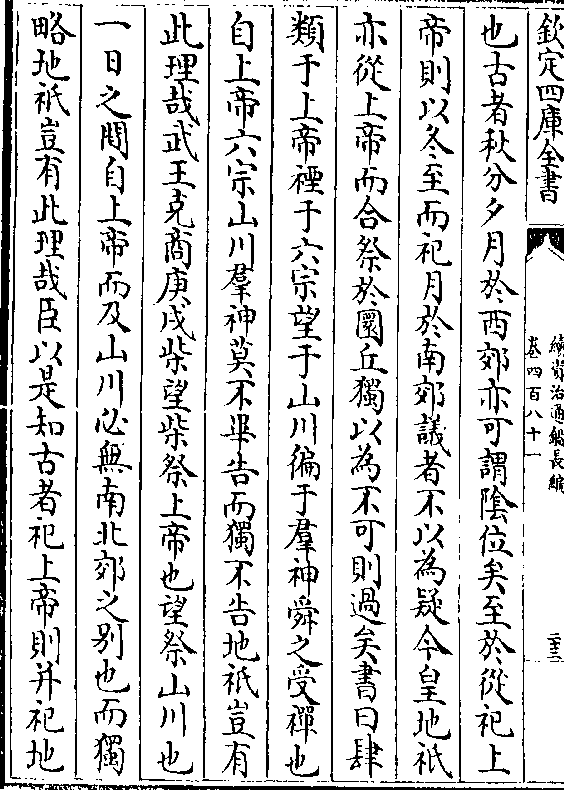 欽定四庫全書
續資治通鑑長編
卷四百八十一
二十三
也古者秋分夕月於西郊亦可謂陰位矣至於從祀上
帝則以冬至而祀月於南郊議者不以為疑今皇地祇
亦從上帝而合祭於圜丘獨以為不可則過矣書曰肆
類于上帝禋于六宗望于山川徧于羣神舜之受禪也
自上帝六宗山川羣神莫不畢告而獨不告地祇豈有
此理哉武王克商庚戌柴望柴祭上帝也望祭山川也
一日之間自上帝而及山川必無南北郊之别也而獨
略地祇豈有此理哉臣以是知古者祀上帝則并祀地